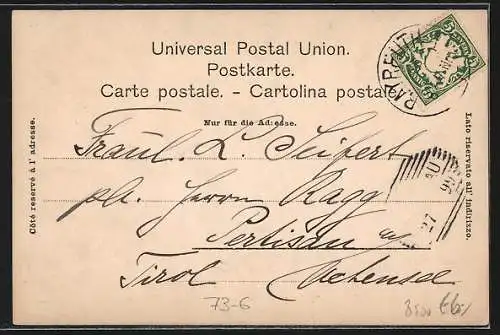 Universal Postal Union.
Postkarte.
Carte postale. - Cartolina postale
Nur für die Adresse.
Côté reservé à l'adresse.
Lato riservato all'indirizzo.
BAYREUTH
Fräul. L. Seifert
pr. Herrn Ragg
Pertisau a/
Tirol Achensee
27
AU
99
73-6